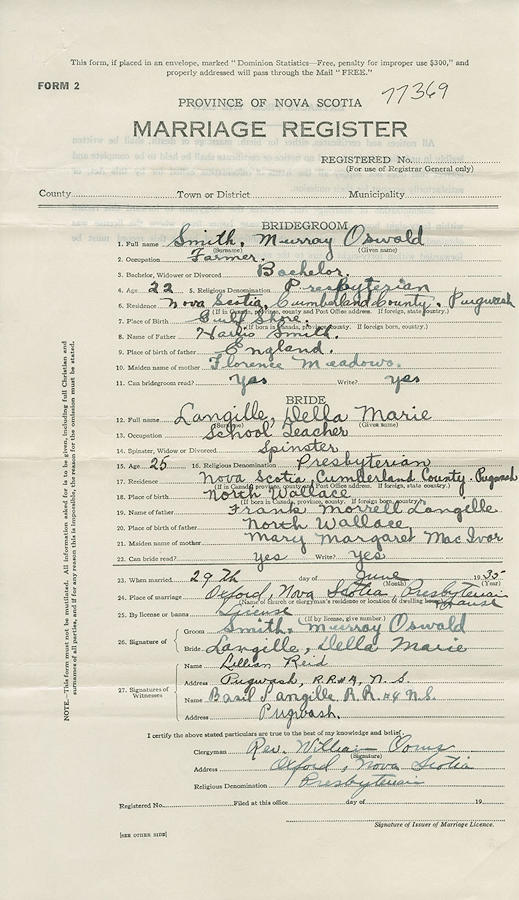 This form, if placed in an envelope, marked "Dominion Statistics—Free, penalty for improper use $300," and
properly addressed will pass through the Mail "FREE."
FORM 2
77369
PROVINCE OF NOVA SCOTIA
MARRIAGE REGISTER
REGISTERED No.
(For use of Registrar General only)
County Town or District Municipality
BRIDEGROOM
1. Full name Smith, Murray Oswald
(Surname) (Given name)
2. Occupation Farmer.
3. Bachelor, Widower or Divorced Bachelor.
4. Age 22 5. Religious Denomination Presbyterian
6. Residence Nova Scotia, Cumberland County, Pugwash
(If in Canada, province, county and Post Office address. If foreign, state country.)
7. Place of Birth Gulf Shore.
(If born in Canada, province, county. If foreign born, country.)
8. Name of Father Smith.
9. Place of birth of father England.
10. Maiden name of mother Florence Meadows.
11. Can bridegroom read? Yes Write? yes
BRIDE
12. Full name Langille, Della Marie
(Surname) (Given name)
13. Occupation School Teacher
14. Spinster, Widow or Divorced Spinster
15. Age 25 16. Religious Denomination Presbyterian
17. Residence Nova Scotia, Cumberland County. Pugwash
(If in Canada, province, county and Post Office address. If foreign, state country.)
18. Place of birth North Wallace
(If born in Canada, province, county. If foreign born, country.)
19. Name of father Frank Morrell Langille
20. Place of birth of father North Wallace
21. Maiden name of mother Mary Margaret Mac Ivor
22. Can bride read? yes Write? Yes
23. When married 29th day of June 1935
(Month) (Year)
24. Place of marriage Oxford, Nova Scotia, Presbyterian Manse
(Name of church or clergyman's residence or location of dwelling house)
25. By license or banns License
(If by license, give number)
26. Signature of
Groom Smith, Murray Oswald
Bride Langille, Della Marie
27. Signatures of Witnesses
Name Lillian Reid
Address Pugwash, R.R#4, N.S.
Name Basil Langille R.R. #4 N.S.
Address Pugwash.
I certify the above stated particulars are true to the best of my knowledge and belief.
Clergyman Rev. William Ooms
(Signature)
Address Oxford, Nova Scotia
Religious Denomination Presbyterian
Registered No. Filed at this office day of 19
Signature of Issuer of Marriage Licence.
[SEE OTHER SIDE]
NOTE.—This form must not be mutilated. All information asked for is to be given, including full Christian and
surnames of all parties, and if for any reason this is impossible, the reason for the omission must be stated.